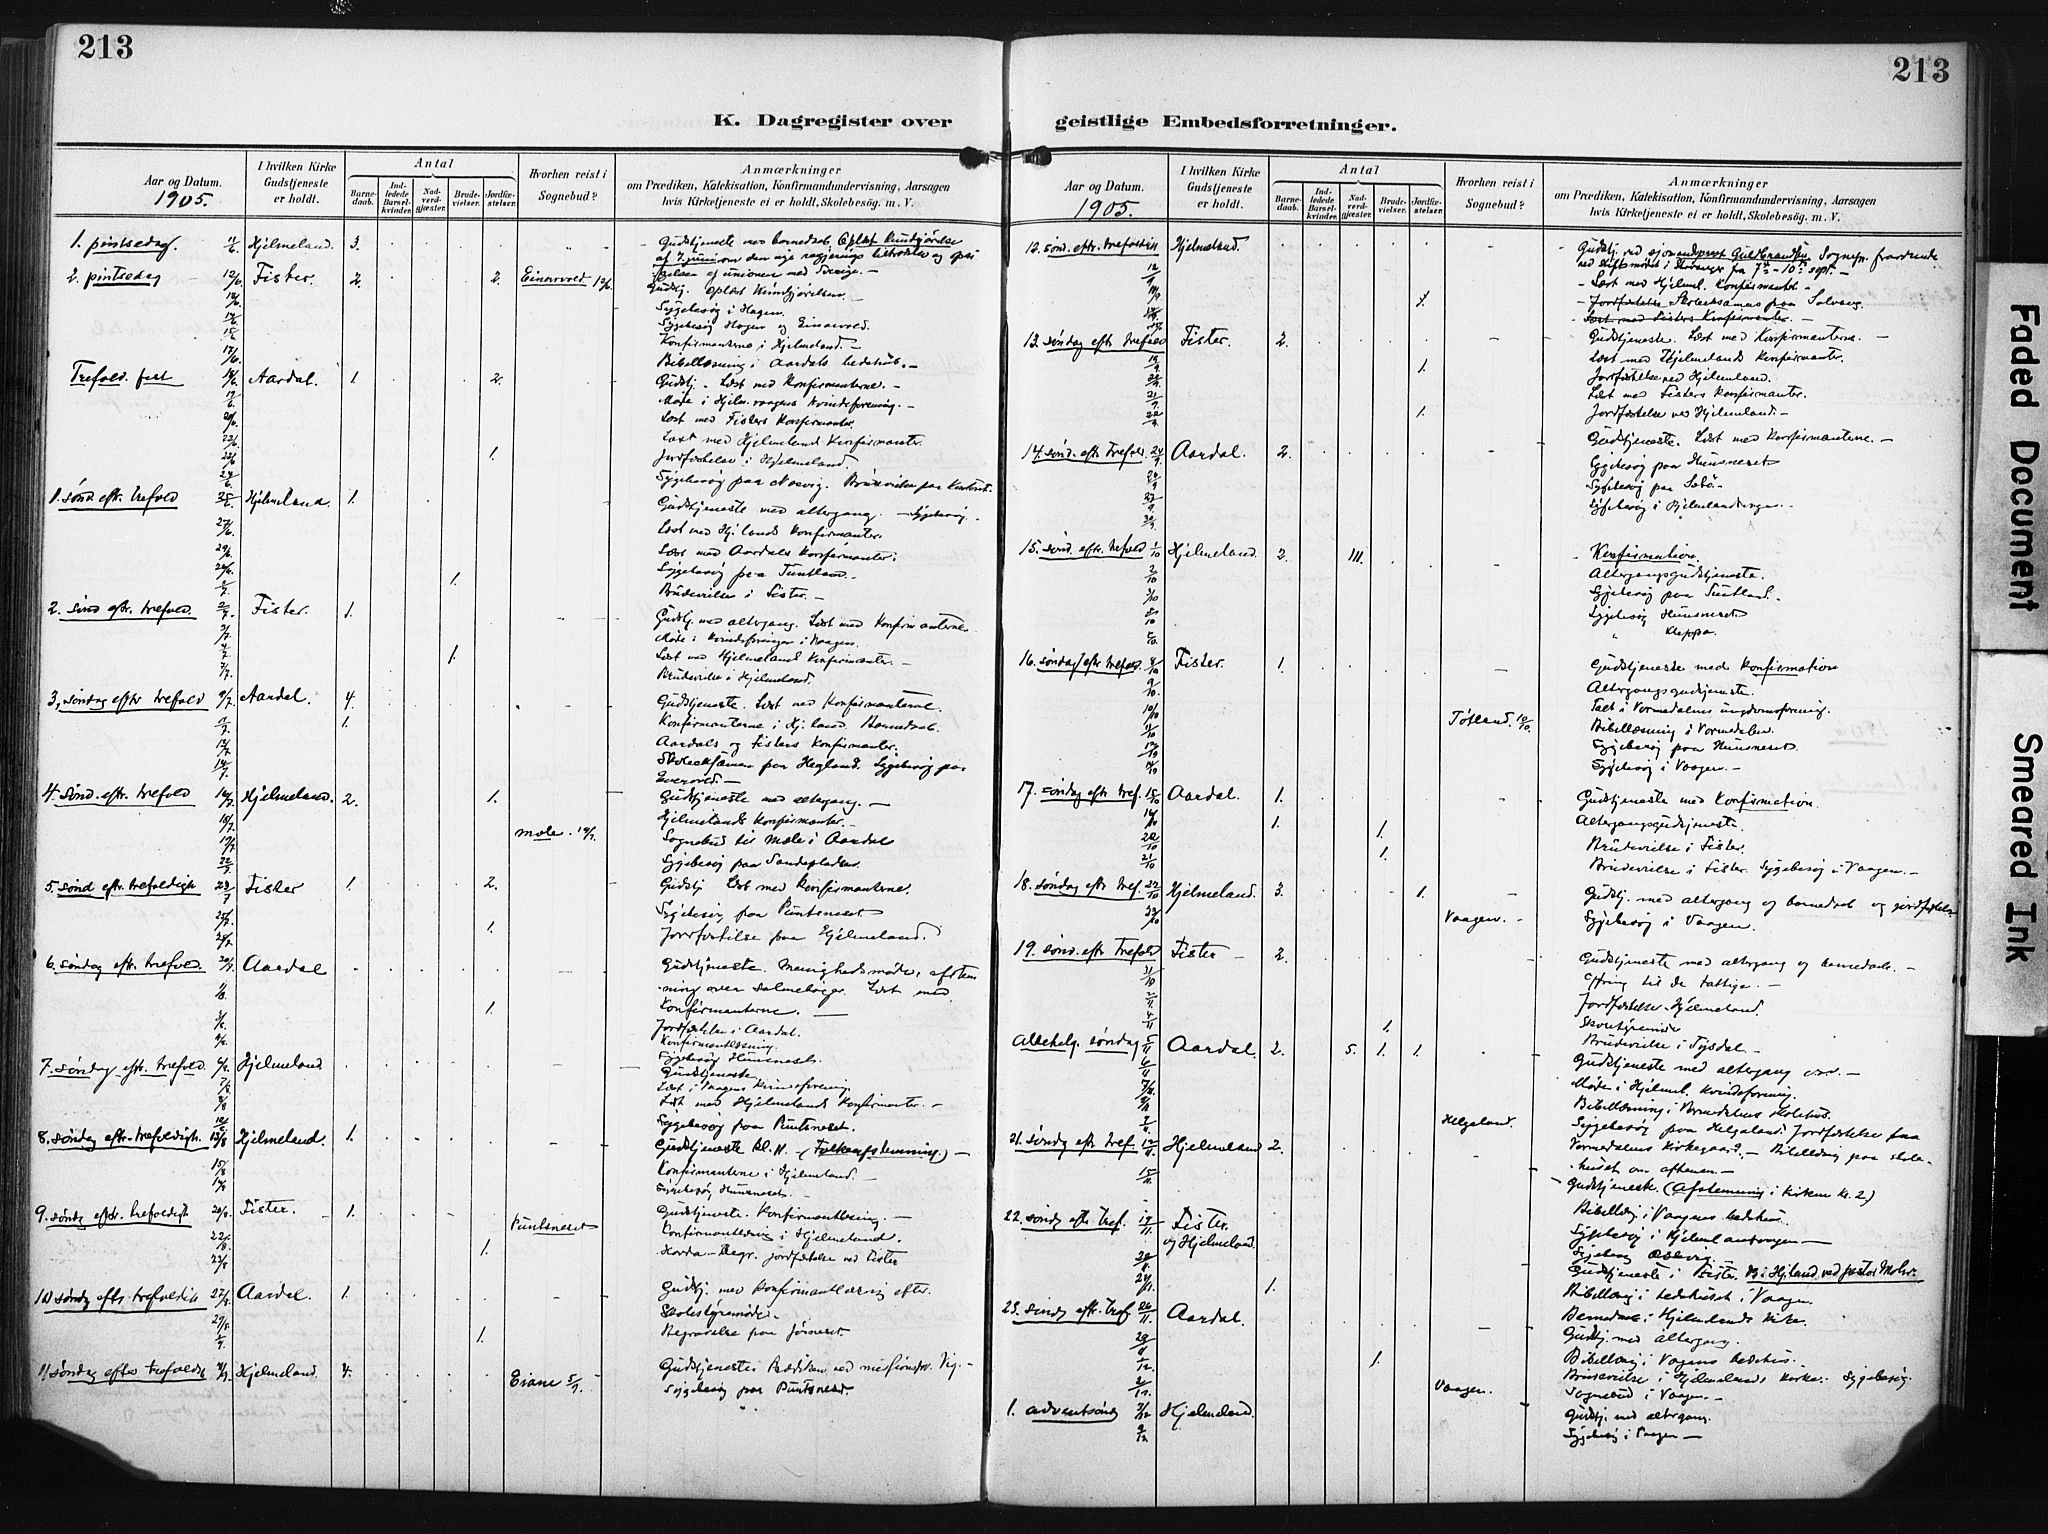 213
213
K. Dagregister over geistlige Embedsforretninger.
Aar og Datum.
1905.
I hvilken Kirke Gudstjeneste er holdt.
Antal
Barnedaab.
Indledede Barselkvinder.
Nadverdgjæster.
Brudevielser.
Jordfæstelser.
Hvorhen reist i Sognebud?
Anmærkninger
om Prædiken, Katekisation, Konfirmandundervisning, Aarsagen
hvis Kirketjeneste ei er holdt, Skolebesøg. m. V.
1. pintsedag. 11/6 Hjelmeland. 3. Gudstjeneste med barnedaab. Oplæst Kundgjørelse
af 7 juni om den nye regjerings tiltrædelse og opløs
ningen af unionen med Sverige. —
2. pintsedag 12/6 Fister. 2. 2. Einarvold 12/6 Gudstj. oplæst Kundgjørelsen. —
Sygebesøg i Hagen.
15/6 Sygebesøg Hagen og Einarvold.
Konfirmanterne i Hjelmeland. —
17/6 Bibellæsning i Aardals bedehus. —
Trefold. fest 18/6 Aardal. 1. 2. Gudstj. Læst med Konfirmanterne. —
Møde i Hjelm.vaagens Kvindeforening. —
20/6 Læst med Fisters Konfirmanter.
22/6 Læst med Hjelmelands Konfirmanter.
1. Jordfæstelse i Hjelmeland.
Sygebesøg paa Nesvig. Brudevielse paa Kontoret.
1. sønd. eftr. trefold 25/6 Hjelmeland. 1. Gudstjeneste med altergang. — Sygebesøg.
27/6 Læst med Hj.lands Konfirmanter.
Læst med Aardals Konfirmanter.
Sygebesøg paa Tuntland. —
1. Brudevielse i Fister. —
2. sønd eftr. trefold. 2/7 Fister. 1. Gudstj. med altergang. Læst med Konfirmanterne.
Møde i Kvindeforeningen i Vaagen.
Læst med Hjelmelands Konfirmanter. —
7/7 1. Brudevielse i Hjelmeland.
3. søndag efter trefold 9/7 Aardal. 4. Gudstjeneste. Læst med Konfirmanterne.
1. Konfirmanterne i Hj.land Barnedaab.
Aardals og Fisters Konfirmanter.
Skoleeksamen paa Hegland. Sygebesøg paa
4. sønd. eftr. trefold 16/7 Hjelmeland. 2. 1. Gudstjeneste med altergang. —
18/7 Hjelmelands Konfirmanter. —
19/7 mæle. 19/7. Sognebud til Mæle i Aardal
22/7 Sygebesøg paa Sandepladsen
5. sønd eftr. trefoldigh 23/7 Fister 1. 2. Gudstj Læst med Konfirmanterne.
25/7 Sygebesøg paa Puntsneset.
1. Jordfæstelse paa Hjelmeland.
6. søndag eftr. trefold. 30/7 Aardal Gudstjeneste. Menighedsmøde, afstem
ning over salmebøger. Læst med
Konfirmanterne. —
1. Jordfæstelse i Aardal.
Konfirmantlæsning.
Sygebesøg Huusneset.
7. søndag eftr. trefold. 6/8 Hjelmeland Gudstjeneste
7/8 Læst i Vaagens Kvindeforening.
8/8 Læst med Hjelmelands Konfirmanter. —
Sygebesøg paa Puntsneset.
8. søndag eftr. trefoldigh. 13/8 Hjelmeland. 1. Gudstjeneste kl. 11. — (Folkeafstemning.) —
15/8 Konfirmanterne i Hjelmeland. —
Sygebesøg Huusneset. —
9. søndg eftr. trefoldigh 20/8 Fister. 1. Gudstjeneste. Konfirmantlæsning. —
22/8 Puntsneset Konfirmantlæsning i Hjelmeland.
1. Jordfæstelse ved Fister
10 søndg efts trefoldigh 27/8 Aardal. 1. Gudstj. med Konfirmantlæsning efter.
29/8 Skolestyremøde.
1. Begravelse paa
11 søndag efter trefoldh 3/9 Hjelmeland. 4. Gudstjeneste. Prædiken ved missionspr. Vig. —
Eiane 5/9. Sygebesøg paa Puntsneset.
Aar og Datum.
1905.
I hvilken Kirke Gudstjeneste er holdt.
Antal
Barnedaab.
Indledede Barselkvinder.
Nadverdgjæster.
Brudevielser.
Jordfæstelser.
Hvorhen reist i Sognebud?
Anmærkninger
om Prædiken, Katekisation, Konfirmandundervisning, Aarsagen
hvis Kirketjeneste ei er holdt, Skolebesög. m. V.
12. sønd. eftr. trefoldigh Hjelmeland. Gudstj. ved sjømandsprest Guldbrandsen Sognepr. fraværende
ved stiftsmødet i Stavanger fra 7de – 10de sept. —
— Læst med Hjelml. Konfirmanter. —
1. — Jordfæstelse Skoleeksamen paa Solvang
— Læst med Fisters Konfirmanter. —
13. søndag eftr. trefold 17/9 Fister. 2. Gudstjeneste. Læst med Konfirmanterne. —
19/9 Læst med Hjelmelands Konfirmanter.
1. Jordfæstelse ved Hjelmeland.
21/9 Læst med Fisters Konfirmanter.
22/9 1. Jordfæstelse ved Hjelmeland. —
14. sønd. eftr. trefol. 24/9 Aardal. 2. Gudstjeneste. Læst med Konfirmanterne. —
Sygebesøg paa Huusneset
Sygebesøg paa
Sygebesøg i Hjelmelandvagen. —
15. sønd. eftr. trefold 1/10 Hjelmeland. 2. 111. Konfirmation.
Altergangsgudstjeneste.
Sygebesøg paa Tuntland. —
Sygebesøg Huusneset
" Kleppa.
16. søndag eftr. trefold. 8/10 Fister. 1. Gudstjeneste med Konfirmation
9/10 Altergangsgudstjeneste.
10/10 Tøtland. 10/10. Talt i Vormedalens ungdomsforening.
11/10 Bibellæsning i Vormedalen.
Sygebesøg paa Huusneset.
14/10 Sygebesøg i Vaagen. —
17. søndag eftr tref. 15/10 Aardal. 1. Gudstjeneste med Konfirmation.
16/10 1. 1. Altergangsgudstjeneste.
20/10 Brudevielse i Fister.
21/10 1. Brudevielse i Fister. Sygebesøg i Vaagen. —
18. søndag eftr tref. 22/10 Hjelmeland. 3. 1. Gudstj. med altergang og barnedaab og jordfæstelse
Vaagen. — Sygebesøg i Vaagen.
19. sønd. eftr Trefold Fister — 2. Gudstjeneste med altergang og barnedaab. —
31/10 Ofring til de fattige. —
Jordfæstelse. Hjelmeland.
Skolestyremøde
4/11 1. Brudevielse i Tysdal —
Allehelg. søndag 5/11 Aardal. 2. 5. 1. 1. Gudstjeneste med altergang
6/11 Møde i Hjelml. Kvindeforening.
7/11 Bibellæsning i Vormedalens skolehus.
Helgaland. Sygebesøg paa Helgaland. Jordfæstelse paa
Vormedalens Kirkegaard. — Bibellæsng paa skole-
huset om aftenen. —
21. søndg eftr tref. 12/11. Hjelmeland 2. Gudstjeneste. (Afstemning i kirken kl. 2)
15/11. Bibellæsg i Vaagens bedehus.
Sygebesøg i Hjelmelandvagen —
Sygebesøg
22. søndg eftr Tref. 19/11. Fister. og Hjelmeland. Gudstjeneste i Fister. & i Hj.land ved pastor Molvær.
Bibellæsg i bedehuset i Vaagen.
1. Barnedaab i Hjelmelands kirke.
23. søndg eftr. Tref 26/11. Aardal. Gudstj. med altergang.
29/11 Bibellæsg i Vagens bedehus. —
1/12. 1. Brudevielse i Hjelmelands kirke. Sygebesøg.
Vaagen. Sognebud i Vaagen —
1. adventsøndg 3/12 Hjelmeland. Gudstj. med altergang.
Sygebesøg i Vaagen —
Faded Document
Smeared Ink